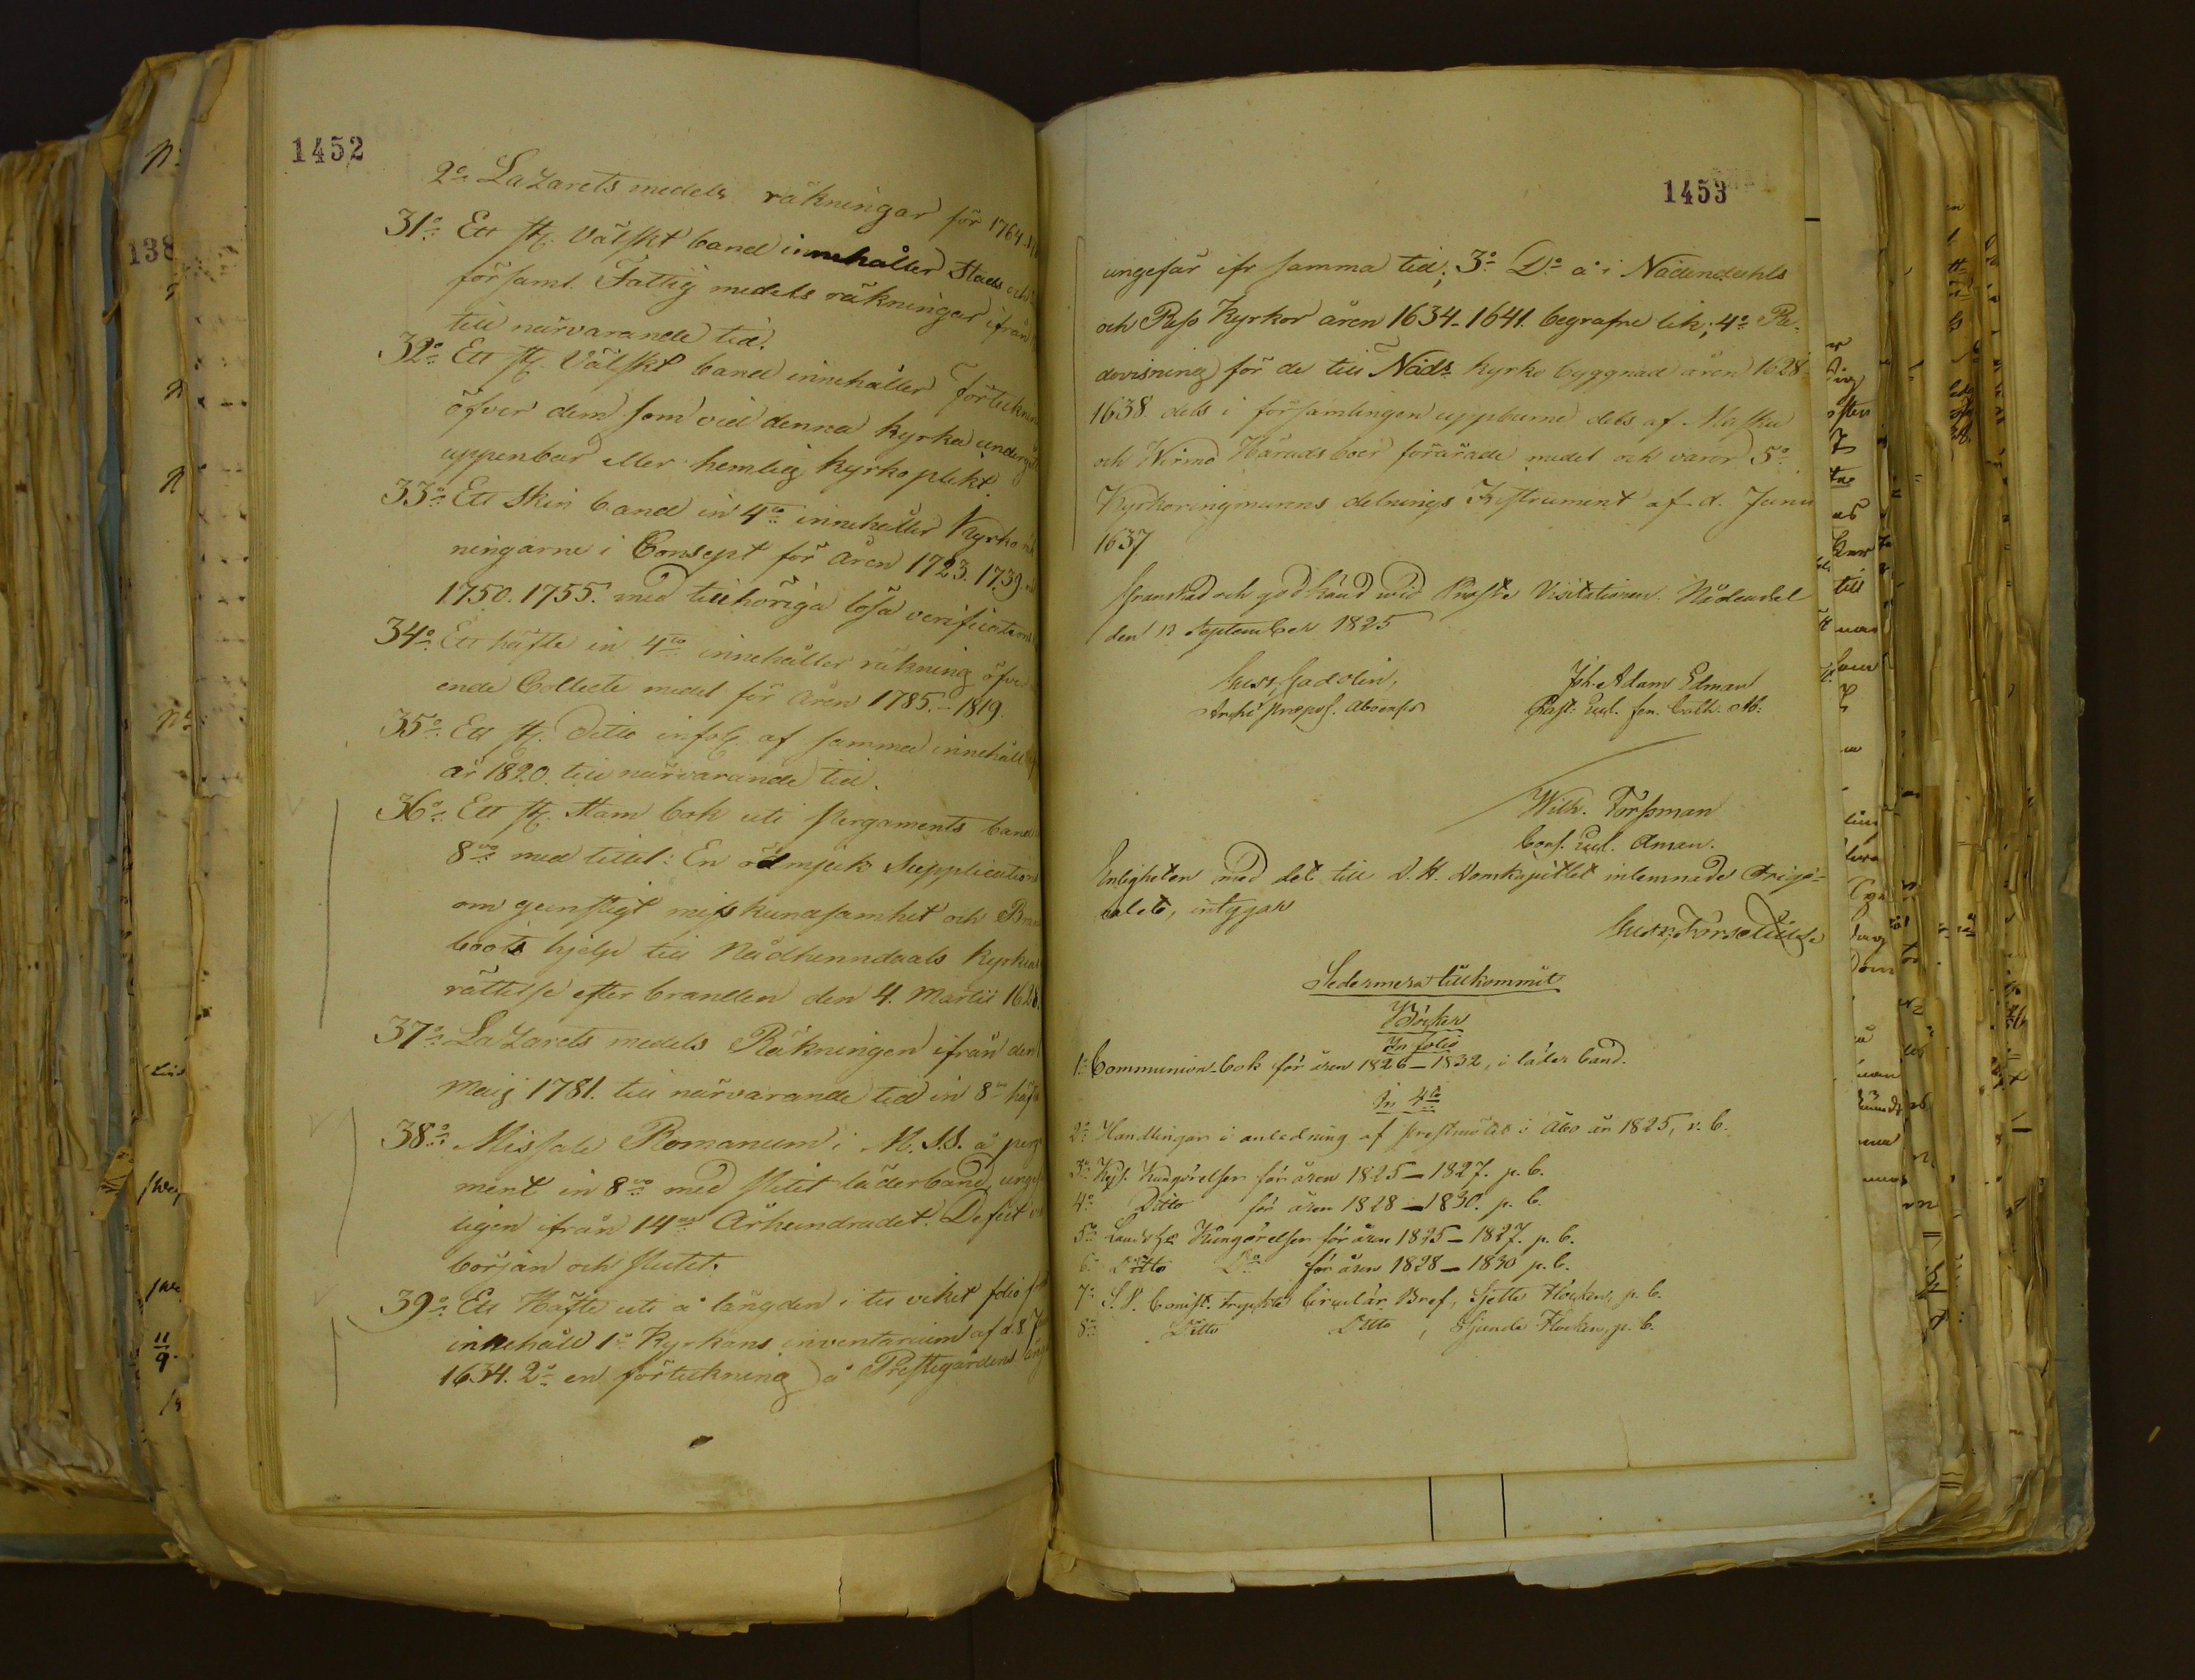 1452
2o Lazarets medels räkningar för 1764
31o Ett st. Välskt band innehåller Stads och
församl. Fattig medels räkningar ifrån
till närvarande tid.
32o Ett st. Välskt band innehåller Förteckn
öfver dem som vid denna kyrka undergått
uppenbar eller hemlig kyrkoplikt.
33o Ett Skin band in 4to innehåller Kyrko räk
ningarne i Consept för åren 1723. 1739.
1750. 1755. med tillhöriga lösa verifications
34o Ett häfte in 4to innehåller räkning öfver
ende Collecte medel för åren 1785.-1819.
35o Ett st. Ditto in fol. af samma innehåll
år 1820. till närvarande tid.
36o Ett st. Stam bok uti Pergaments band
8vo med tittel: En ödmjuk Supplication
om gunstigt misskundsamhet och Bra
boots hjelp till Nådhenndaals Kyrkas
rättelse efter branden den 4. Martii 1628.
37o Lazarets medels Räkningen ifrån den
Maij 1781. till närvarande tid in 8vo häft
38o Missale Romanum i M.S.S. å perga
ment in 8vo med slitit läderband, unge
ligen ifrån 14de Århundradet. Defect
början och slutet.
39o Ett Häfte uti å längden i tu viket folio
innehåll 1o Kyrkans inventarium af d. 8
1634. 2o en förteckning å Prestegårdens
1453
ungefär ifr samma tid; 3o Do å i Nådendahls
och Reso Kyrkor åren 1634-1641. begrafne lik; 4o Re-
dovisning för de till Nåds. Kyrko byggnad åren 1628-
1638. dels i församlingen uppburne dels af Masku
och Wirmo Häradsboer förärade medel och varor 5o
Kyrkoringmurens delnings Instrument af d. Junii
1637
Granskad och godkänd wid Prosте Visitationen. Nådendal
den 12 September 1825
Gust. Gadolin,
Archi Præpos. Aboensis
Joh. Adam Edman
Past: Eccl. fen. Cath. Ab:
Wilh. Forssman
Cons. Eccl. Aman.
Enligheten med det till V. H. Domkapitlet inlemnade Origi-
nalet, intygar
Sedermera tillkommit
Böcker
In folio
1o Communion-bok för åren 1826-1832, i läder band.
In 4to
2o Handlingar i anledning af prestmötet i Åbo år 1825, v. b.
3o Kejs. Kungörelser för åren 1825-1827. p. b.
4o Ditto för åren 1828-1830. p. b.
5o Landsh:s Kungörelser för åren 1825-1827. p. b.
6o Ditto Do för åren 1828-1830 p. b.
7o S. V. Consist. tryckte Circulär Bref, Sjette Flocken, p. b.
8o Ditto Ditto, Sjunde Flocken, p. b.